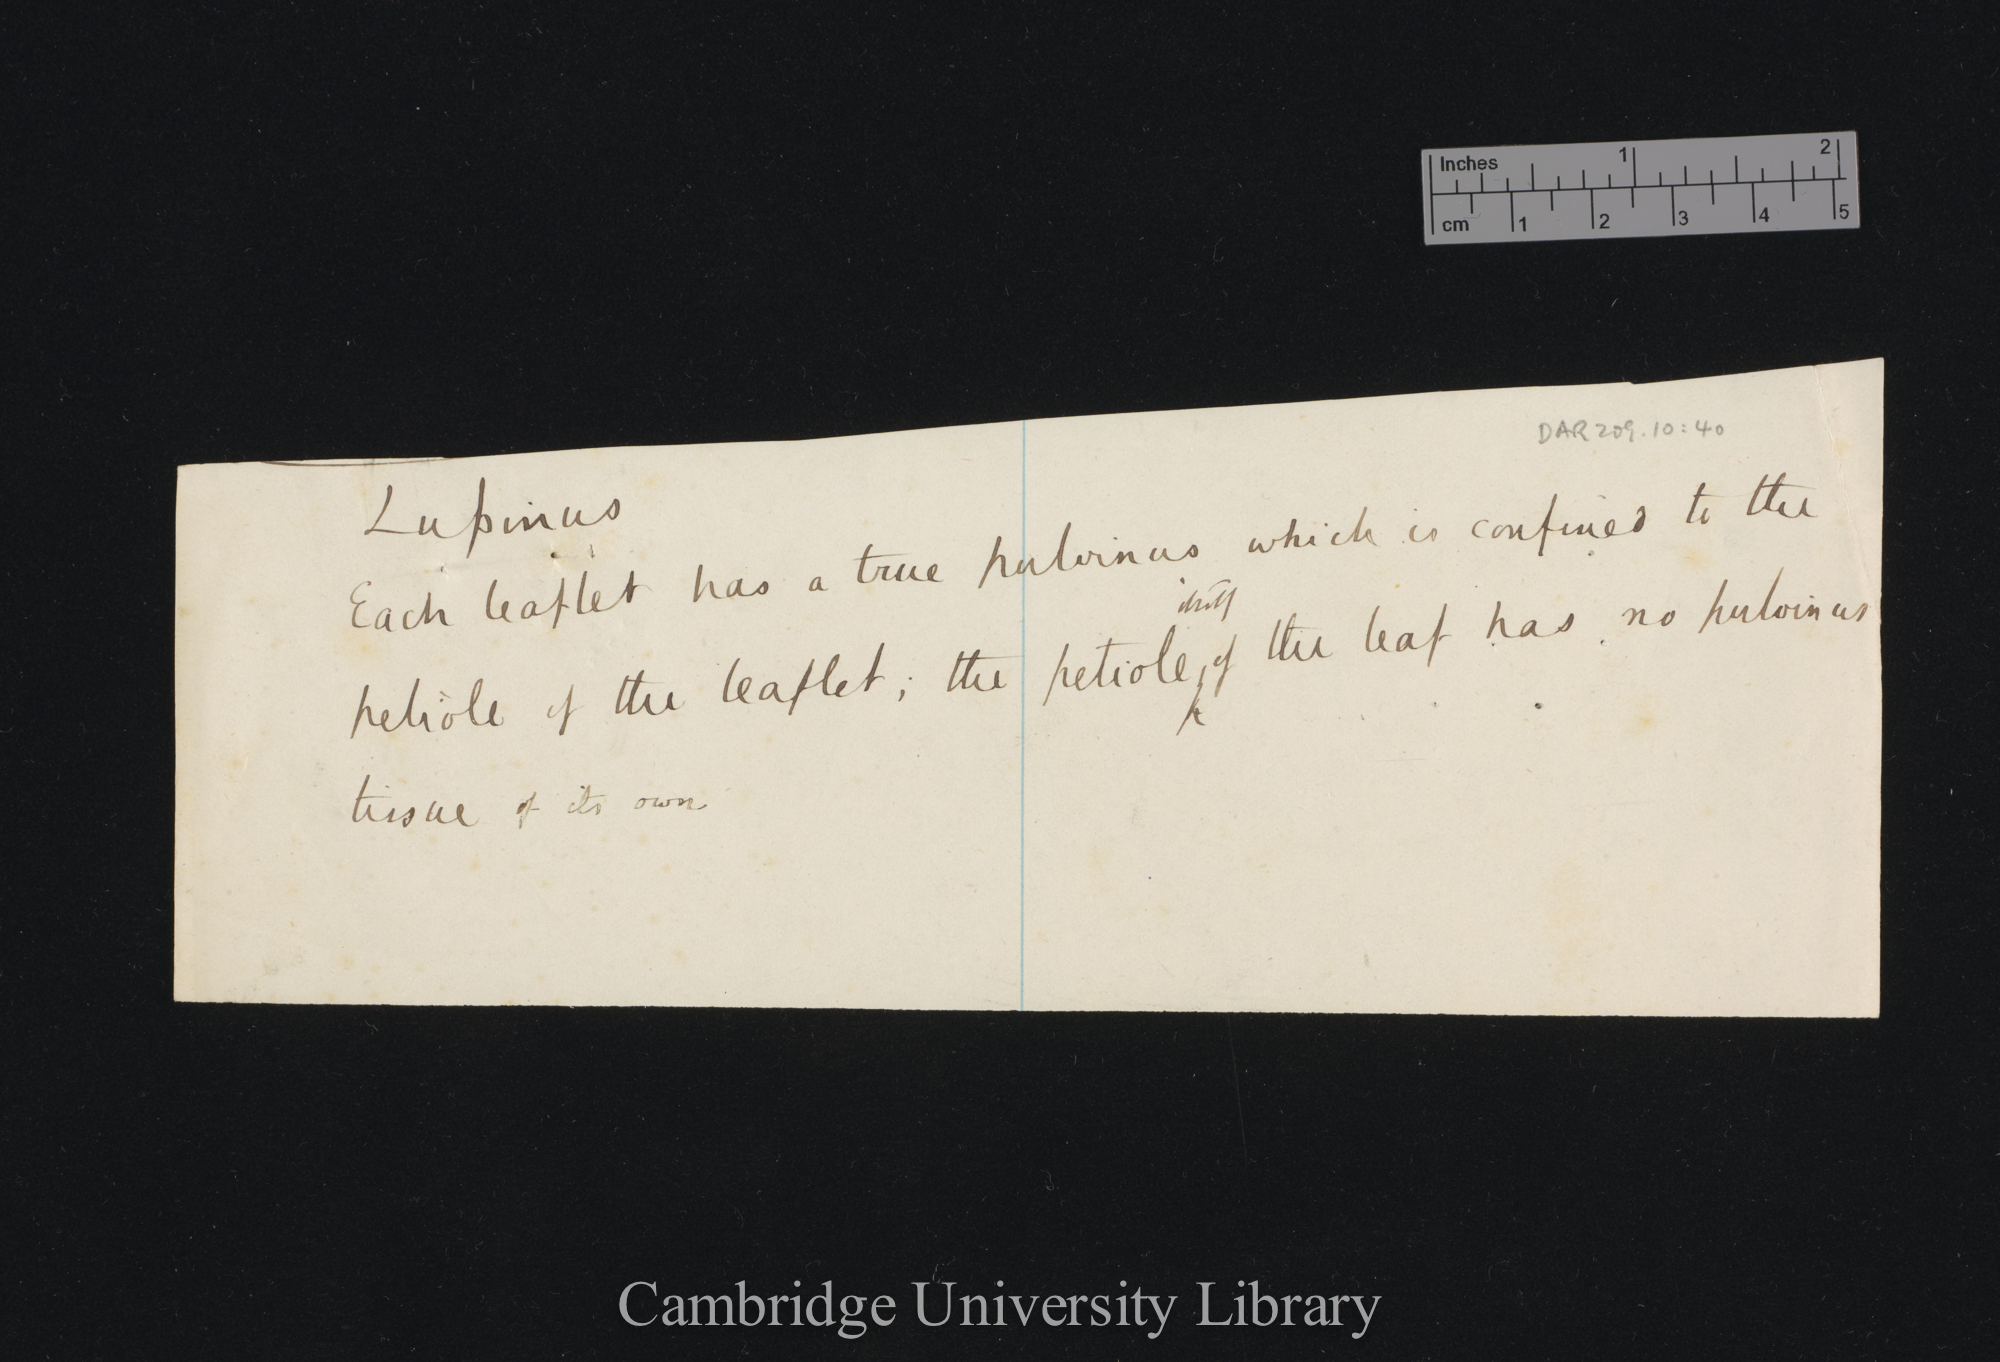 Inches 1 2
cm 1 2 3 4 5
DAR 209.10:40
Lupinus
Each leaflet has a true pulvinus which is confined to the
itself
petiole of the leaflet; the petiole, of the leaf has no pulvinus
tissue of its own
Cambridge University Library